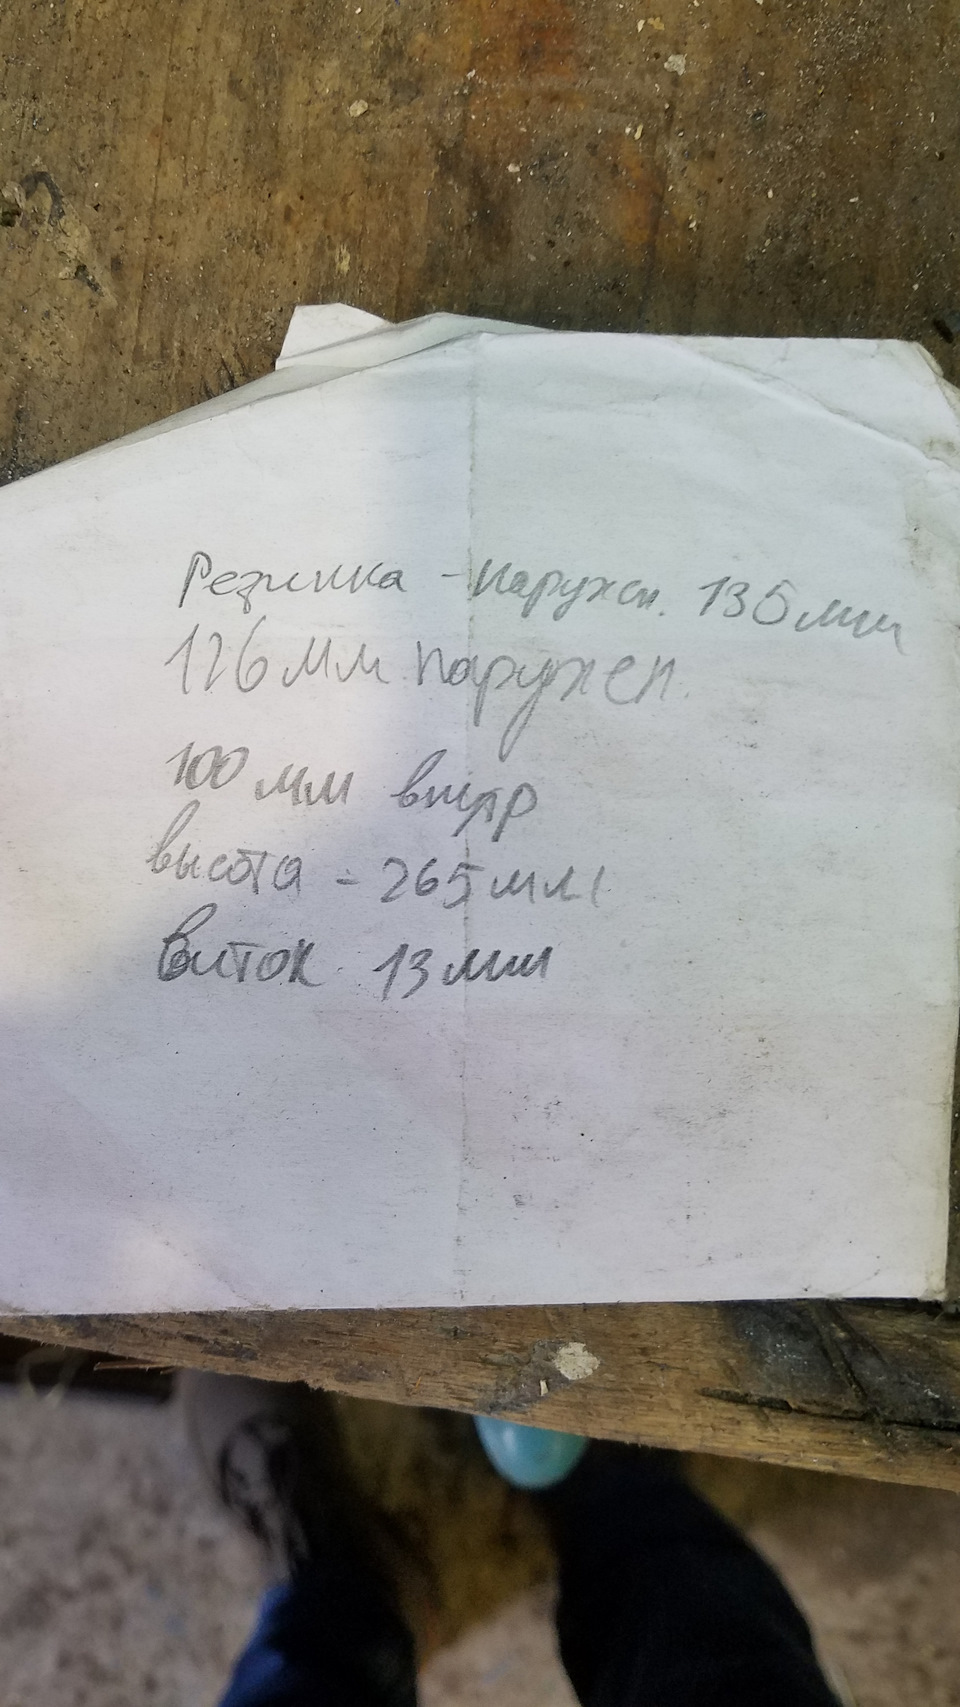 Резинка - наружн. 135мм
126мм наружен.
100 мм внутр
высота - 265мм
Виток 13мм